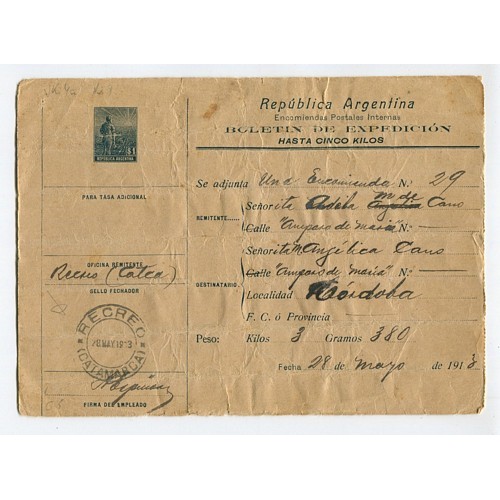 $1
REPUBLICA ARGENTINA
PARA TASA ADICIONAL
OFICINA REMITENTE
Recreo (Catca)
SELLO FECHADOR
RECREO
28 MAY 1913
(CATAMARCA)
FIRMA DEL EMPLEADO
República Argentina
Encomiendas Postales Internas
BOLETIN DE EXPEDICIÓN
HASTA CINCO KILOS
Se adjunta Una Encomienda N.º 29
REMITENTE
Señorita Adela M. de Cano
Calle "Amparo de Maria" N.º —
DESTINATARIO
Señorita M. Angélica Cano
Calle "Amparo de Maria" N.º —
Localidad Córdoba
F. C. ó Provincia
Peso: Kilos 3 Gramos 380
Fecha 28 de mayo de 1913